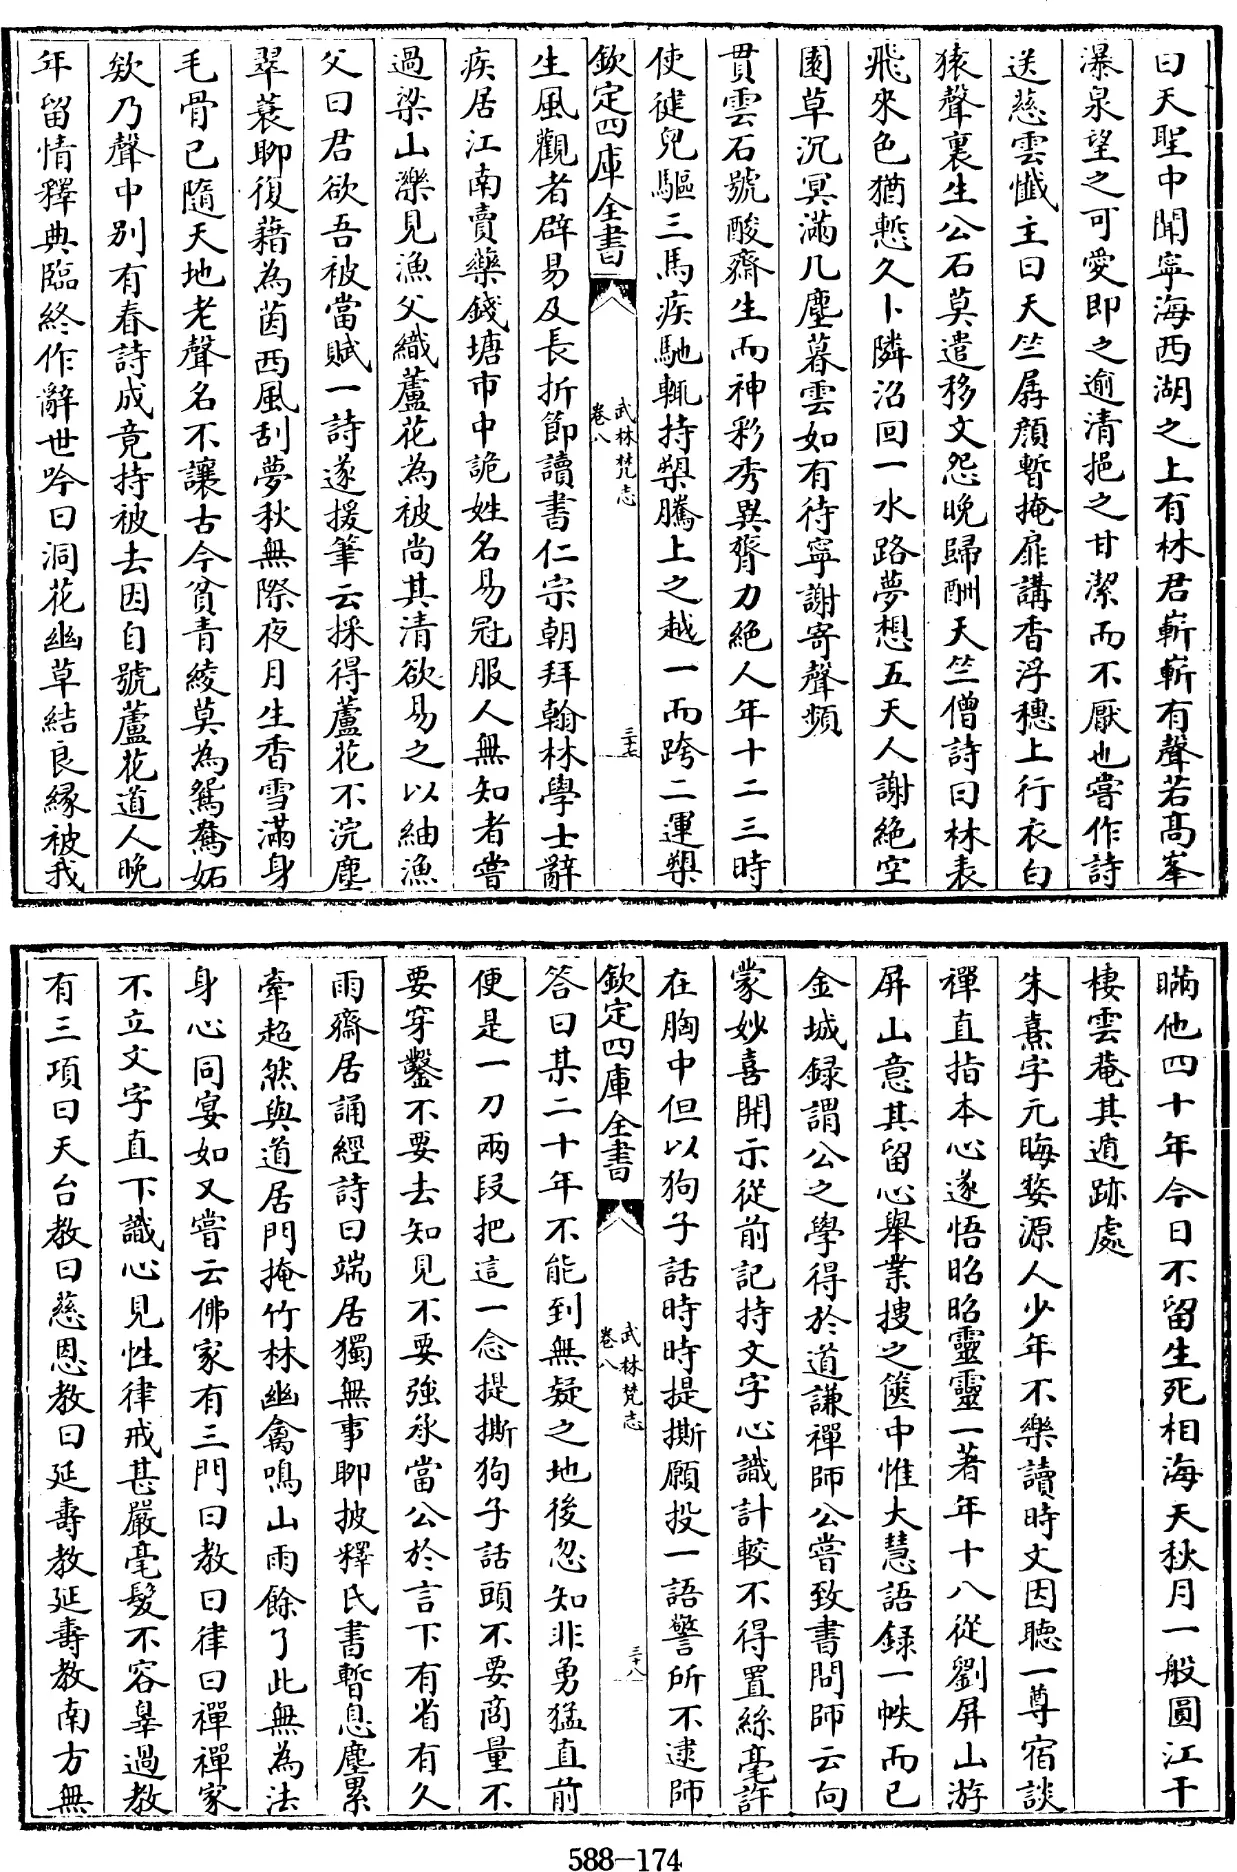 曰天聖中聞寧海西湖之上有林君嶄嶄有聲若髙峯
瀑泉望之可愛即之逾清挹之甘潔而不厭也嘗作詩
送慈雲懺主曰天竺孱顔暫掩扉講香浮穗上行衣白
猿聲裏生公石莫遣移文怨晩歸酬天竺僧詩曰林表
飛來色猶慙久卜隣沿回一水路夢想五天人謝絶空
園草沉冥滿几塵暮雲如有待寧謝寄聲頻
貫雲石號酸齋生而神彩秀異膂力絶人年十二三時
使健兒驅三馬疾馳輒持槊騰上之越一而跨二運槊
欽定四庫全書
武林梵志
卷八
三十七
生風觀者辟易及長折節讀書仁宗朝拜翰林學士辭
疾居江南賣藥錢塘市中詭姓名易冠服人無知者嘗
過梁山濼見漁父織蘆花為被尚其清欲易之以紬漁
父曰君欲吾被當賦一詩遂援筆云採得蘆花不浣塵
翠蓑聊復藉為茵西風刮夢秋無際夜月生香雪滿身
毛骨已隨天地老聲名不讓古今貧青綾莫為鴛鴦妬
欸乃聲中别有春詩成竟持被去因自號蘆花道人晩
年留情釋典臨終作辭世吟曰洞花幽草結良縁被我
瞞他四十年今日不留生死相海天秋月一般圓江干
棲雲菴其遁跡處
朱熹字元晦婺源人少年不樂讀時文因聽一尊宿談
禪直指本心遂悟昭昭靈靈一著年十八從劉屏山游
屏山意其留心舉業搜之篋中惟大慧語録一帙而已
金城録謂公之學得於道謙禪師公嘗致書問師云向
蒙妙喜開示從前記持文字心識計較不得置絲毫許
在胸中但以狗子話時時提撕願投一語警所不逮師
欽定四庫全書
武林梵志
卷八
三十八
答曰某二十年不能到無疑之地後忽知非勇猛直前
便是一刀兩段把這一念提撕狗子話頭不要商量不
要穿鑿不要去知見不要強承當公於言下有省有久
雨齋居誦經詩曰端居獨無事聊披釋氏書暫息塵累
牽超然與道居門掩竹林幽禽鳴山雨餘了此無為法
身心同宴如又嘗云佛家有三門曰教曰律曰禪禪家
不立文字直下識心見性律戒甚嚴毫髮不容辠過教
有三項曰天台教曰慈恩教曰延壽教延壽教南方無
588—174